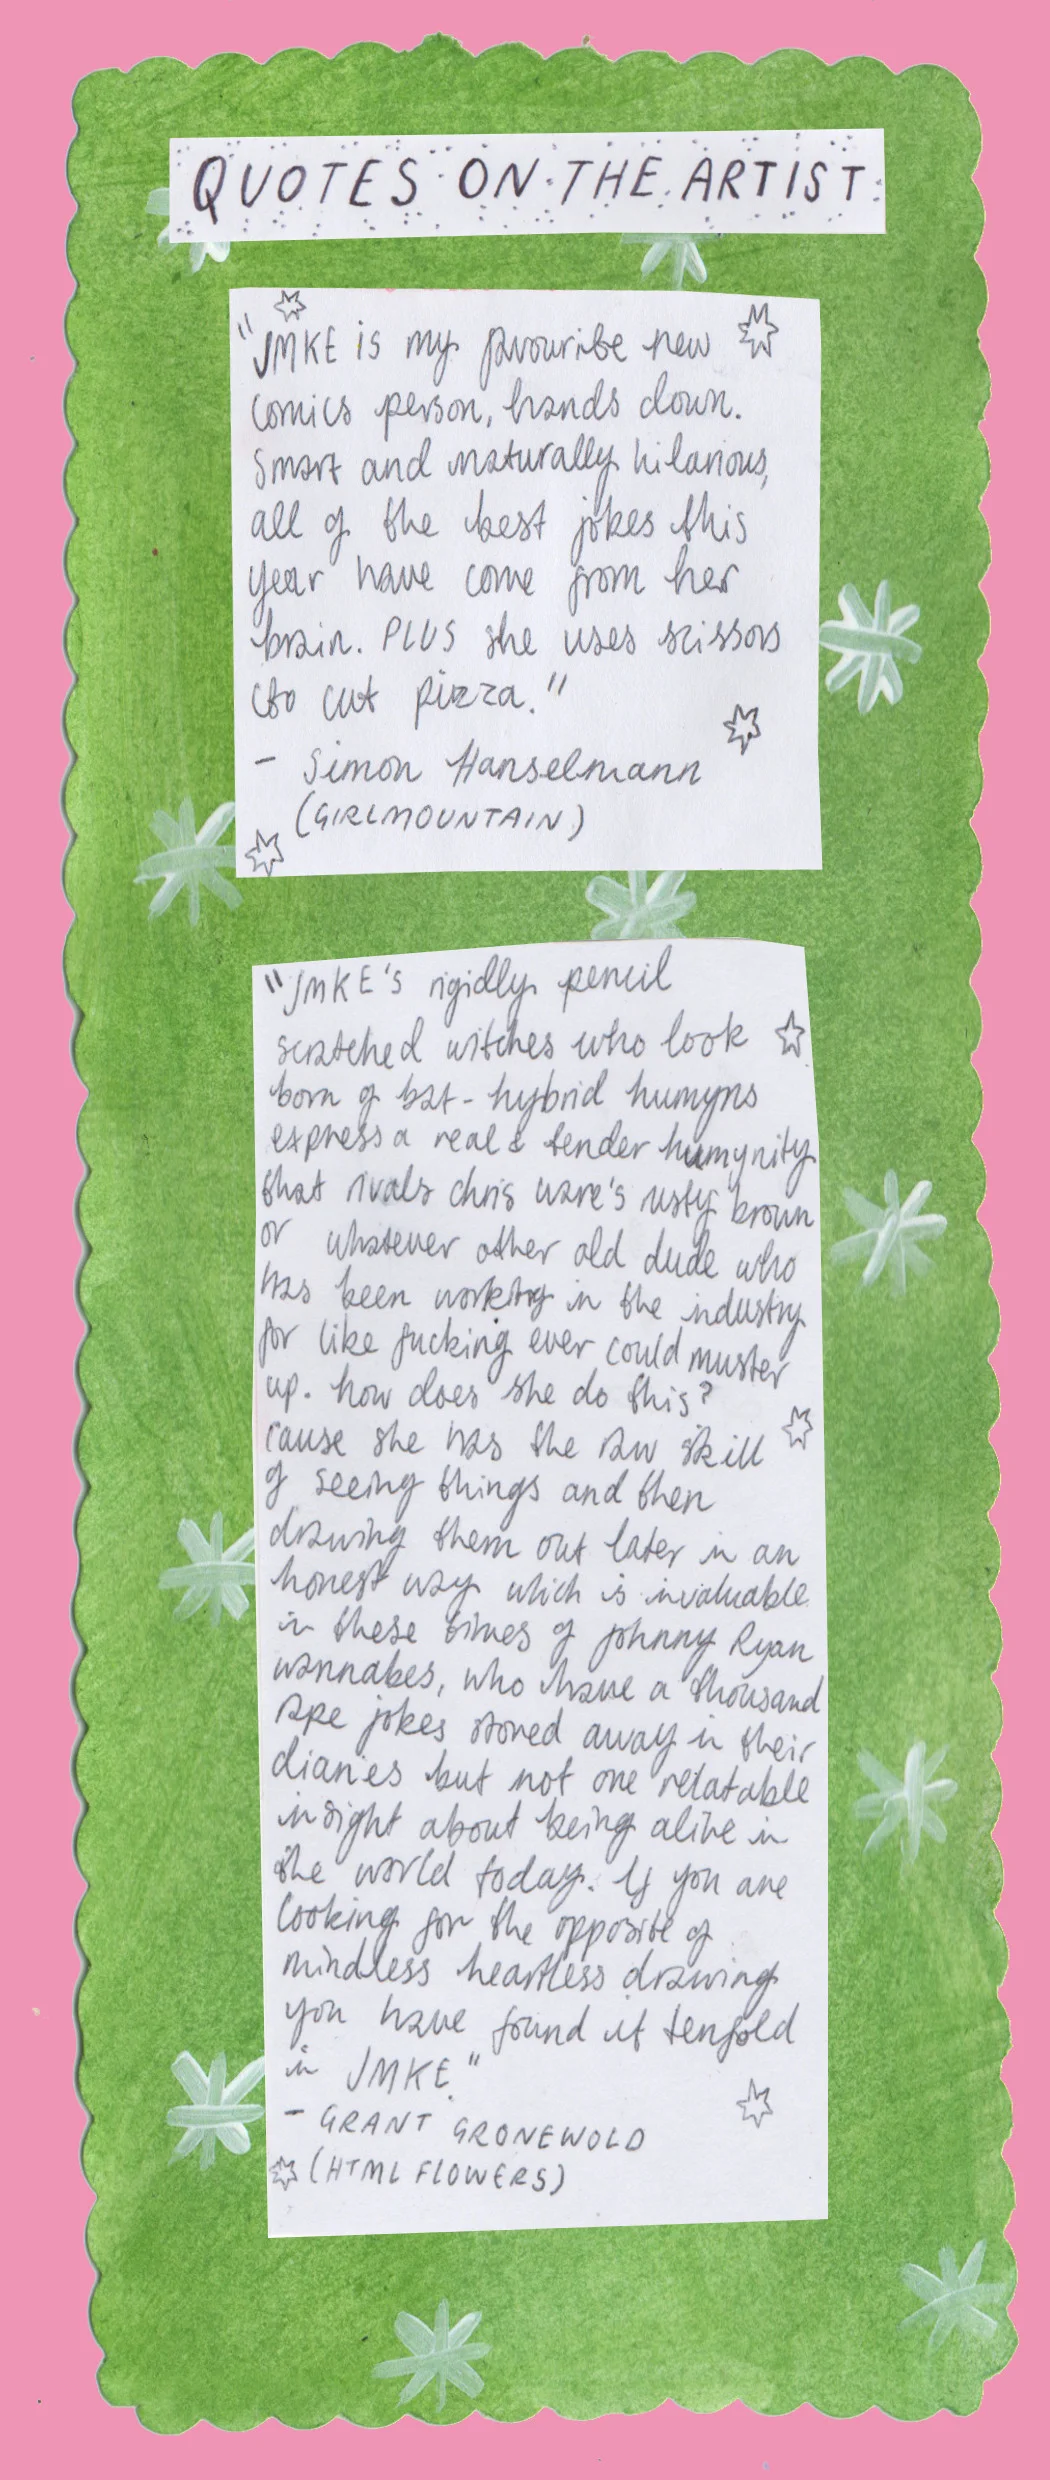 QUOTES ON THE ARTIST
"JMKE is my favourite new
comics person, hands down.
Smart and naturally hilarious,
all of the best jokes this
year have come from her
brain. PLUS she uses scissors
to cut pizza."
- Simon Hanselmann
(GIRLMOUNTAIN)
"JMKE'S rigidly pencil
scratched witches who look
born of bat-hybrid humyns
express a real & tender humynity
that rivals chris ware's rusty brown
or whatever other old dude who
has been working in the industry
for like fucking ever could muster
up. how does she do this?
cause she has the raw skill
of seeing things and then
drawing them out later in an
honest way which is invaluable
in these times of johnny Ryan
wannabes, who have a thousand
rape jokes stored away in their
diaries but not one relatable
insight about being alive in
the world today. If you are
looking for the opposite of
mindless heartless drawing
you have found it tenfold
in JMKE."
- GRANT GRONEWOLD
(HTML FLOWERS)